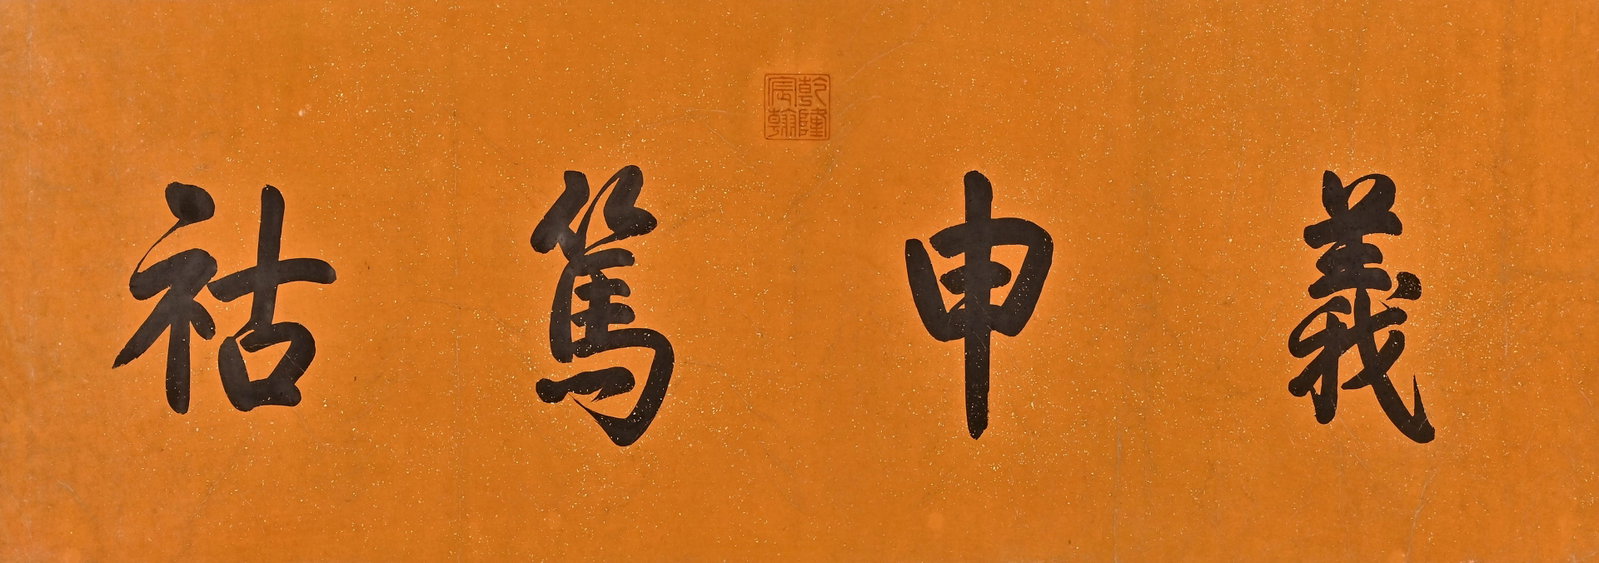 義申篤祜
乾隆宸翰